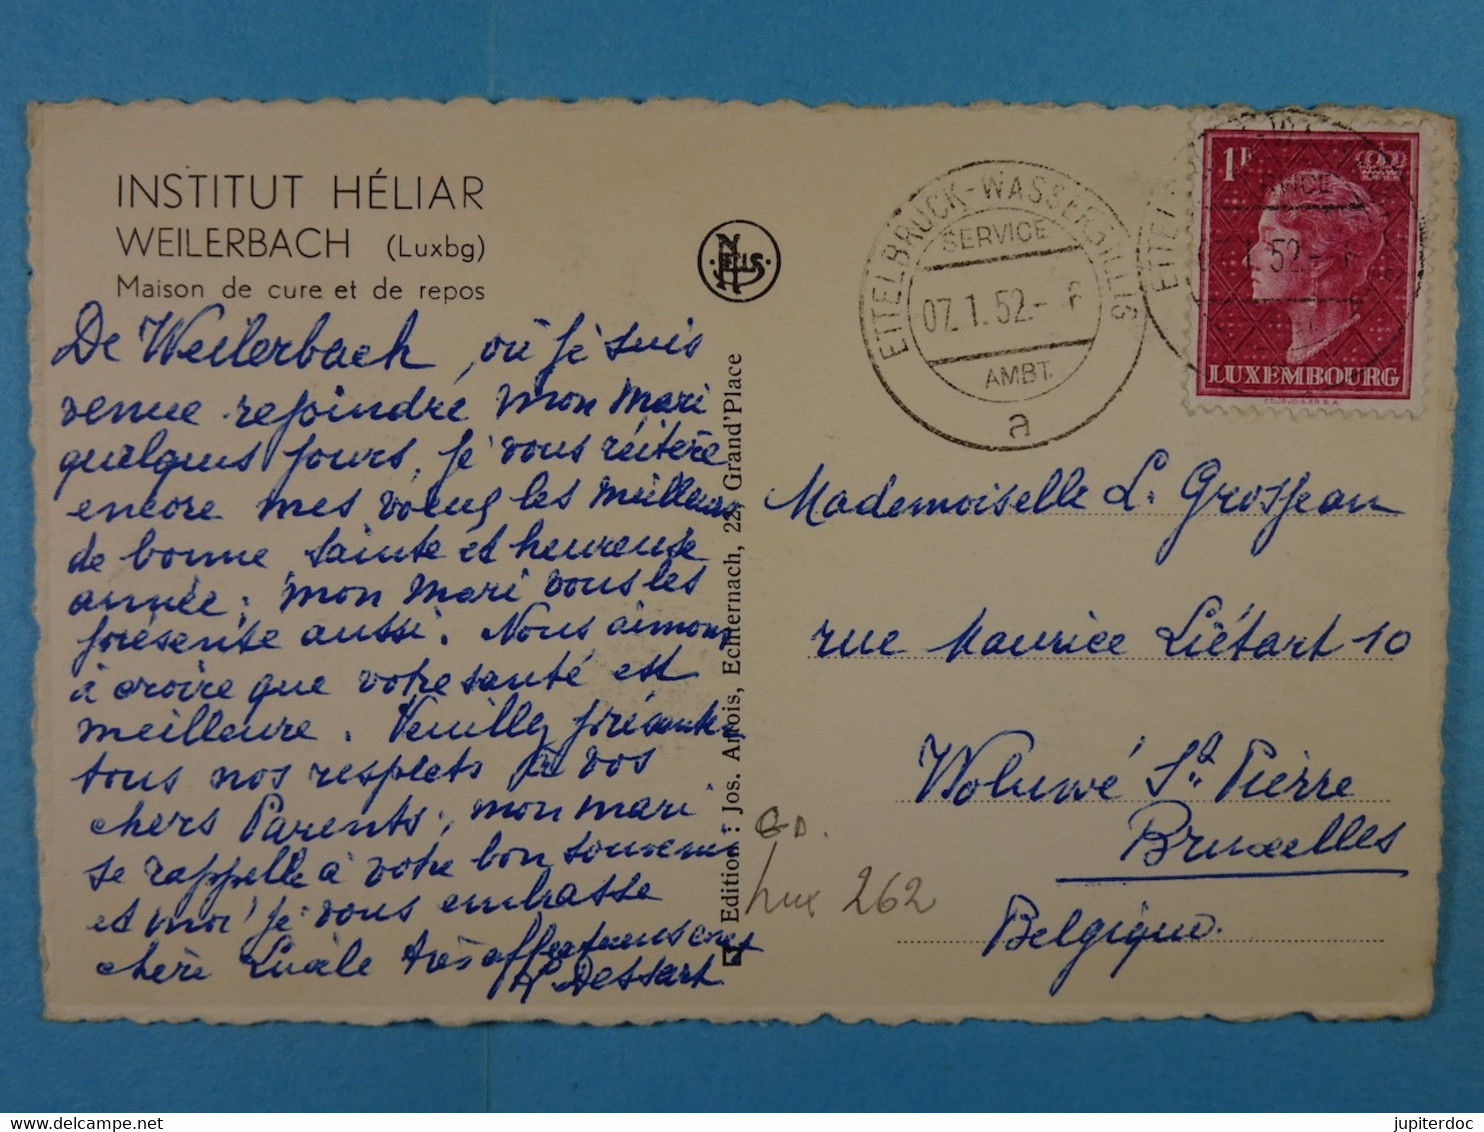 INSTITUT HÉLIAR
WEILERBACH (Luxbg)
Maison de cure et de repos
De Weilerbach, où je suis
venue rejoindre mon mari
quelques jours, je vous réitère
encore mes vœux les meilleurs
de bonne, sainte et heureuse
année; mon mari vous les
présente aussi. Nous aimons
à croire que votre santé est
meilleure. Veuillez présenter
tous nos respects à vos
chers Parents; mon mari
se rappelle à votre bon souvenir
et moi je vous embrasse
chère Lucile très affectueusement
Dessart
NELS
Edition : Jos. Artois, Echternach, 22, Grand'Place
ETTELBRUCK-WASSERBILLIG
SERVICE
07.1.52.- 6
AMBT.
a
1F
LUXEMBOURG
COURVOISIER S.A.
1.52.-
Mademoiselle L. Grosjean
rue Maurice Liétart 10
Woluwé St Pierre
Bruxelles
Belgique.
Lux 262
delcampe.net
jupiterdoc